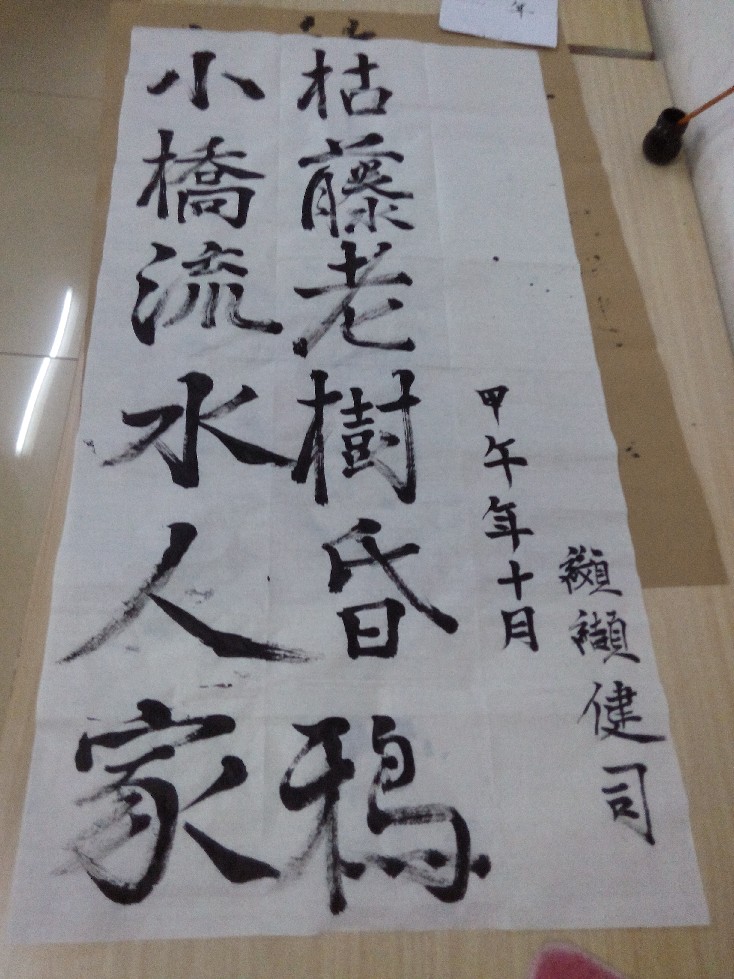 年
纐纈健司
甲午年十月
枯藤老樹昏鴉
小橋流水人家